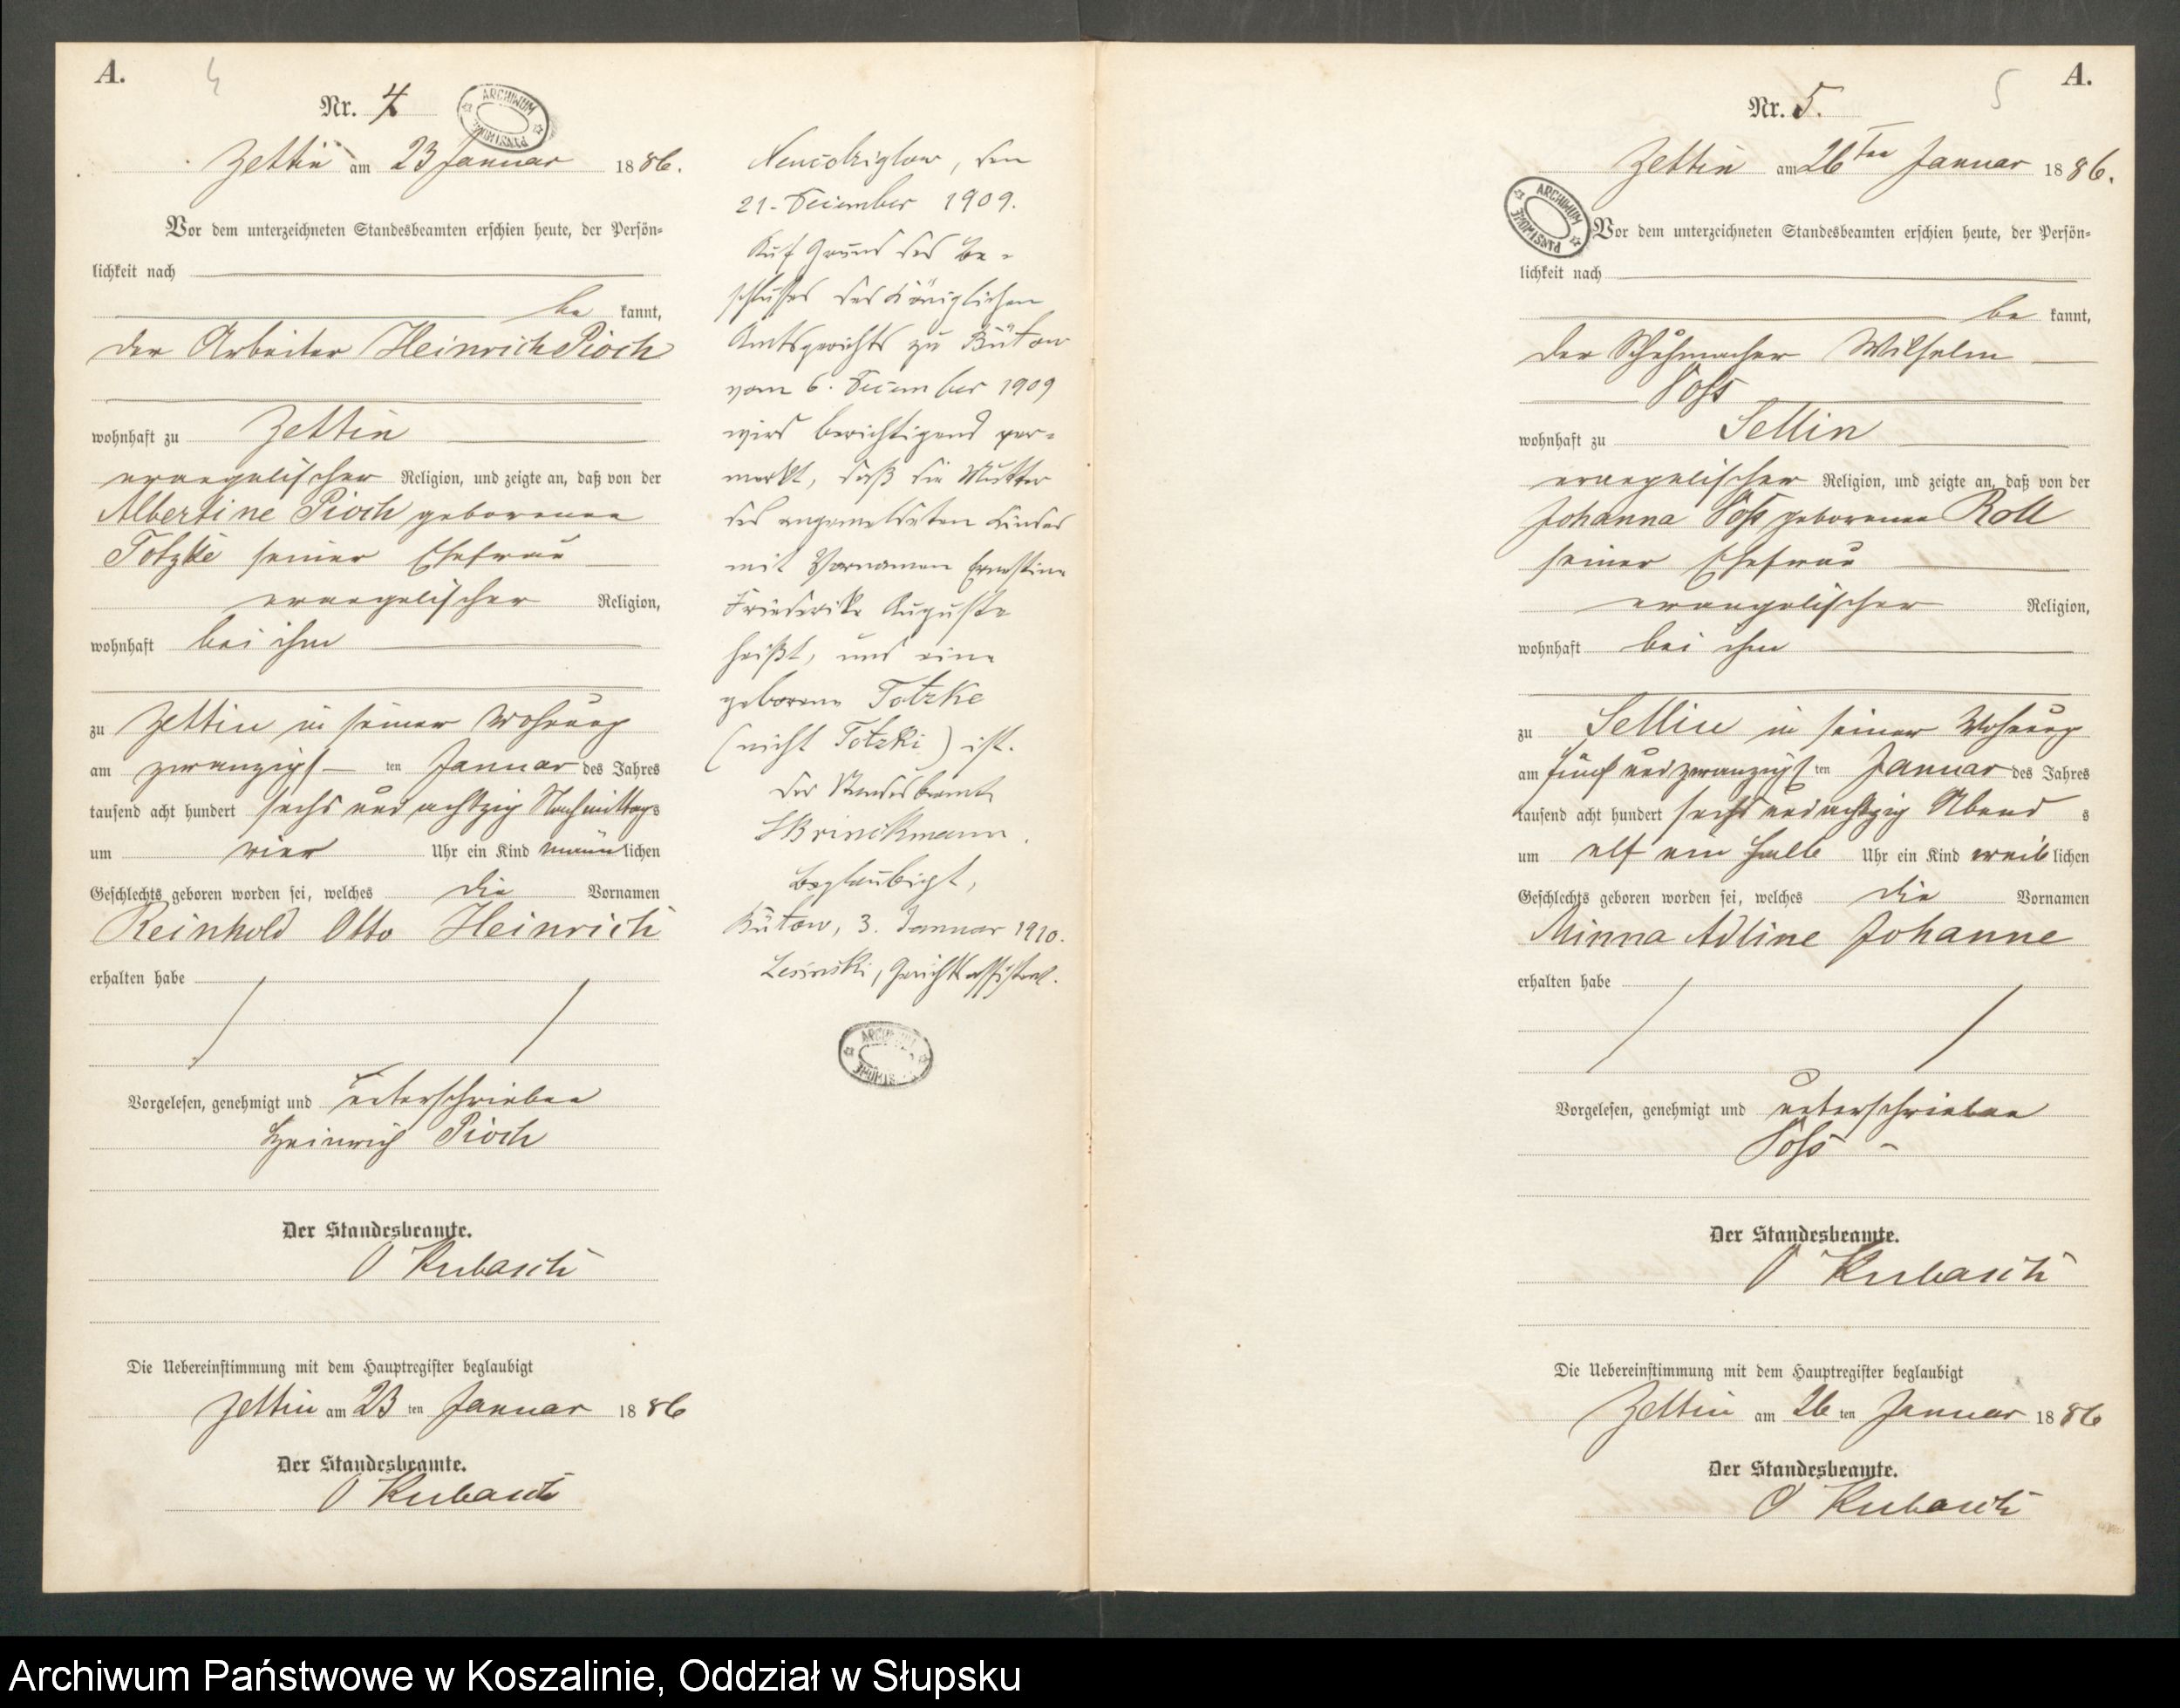 A.
4
Nr. 4
ARCHIWUM PAŃSTWOWE
Zettin am 23 Januar 1886.
Vor dem unterzeichneten Standesbeamten erschien heute, der Persön-
lichkeit nach
be kannt,
der Arbeiter Heinrich Pioch
wohnhaft zu Zettin
evangelischer Religion, und zeigte an, daß von der
Albertine Pioch geborenen
Totzki seiner Ehefrau
evangelischer Religion,
wohnhaft bei ihm
zu Zettin in seiner Wohnung
am zwanzigsten Januar des Jahres
tausend acht hundert sechs und achtzig Nachmittags
um vier Uhr ein Kind männlichen
Geschlechts geboren worden sei, welches die Vornamen
Reinhold Otto Heinrich
erhalten habe
Vorgelesen, genehmigt und unterschrieben
Heinrich Pioch
Der Standesbeamte.
O Kubasch
Die Uebereinstimmung mit dem Hauptregister beglaubigt
Zettin am 23 ten Januar 1886
Der Standesbeamte.
O Kubasch
den
21. December 1909.
Auf Grund des Be-
schlusses des Königlichen
Amtsgerichts zu Bütow
vom 6. December 1909
wird berichtigend ver-
merkt, daß die Mutter
des angemeldeten Kindes
mit Vornamen Ernestine
Friederike Auguste
heißt, und eine
geborene Totzke
(nicht Totzki) ist.
Der Standesbeamte
Brinckmann.
Beglaubigt,
Bütow, 3. Januar 1910.
Lesinski, Gerichtsassistent.
ARCHIWUM PAŃSTWOWE
A.
5
Nr. 5.
Zettin am 26ten Januar 1886.
ARCHIWUM PAŃSTWOWE
Vor dem unterzeichneten Standesbeamten erschien heute, der Persön-
lichkeit nach
be kannt,
der Schuhmacher Wilhelm
Voß
wohnhaft zu Sellin
evangelischer Religion, und zeigte an, daß von der
Johanna Voß geborenen Roll
seiner Ehefrau
evangelischer Religion,
wohnhaft bei ihm
zu Sellin in seiner Wohnung
am fünf und zwanzigsten Januar des Jahres
tausend acht hundert sechs und achtzig Abends
um elf ein halb Uhr ein Kind weiblichen
Geschlechts geboren worden sei, welches die Vornamen
Minna Adline Johanne
erhalten habe
Vorgelesen, genehmigt und unterschrieben
Voß
Der Standesbeamte.
O Kubasch
Die Uebereinstimmung mit dem Hauptregister beglaubigt
Zettin am 26 ten Januar 1886
Der Standesbeamte.
O Kubasch
Archiwum Państwowe w Koszalinie, Oddział w Słupsku